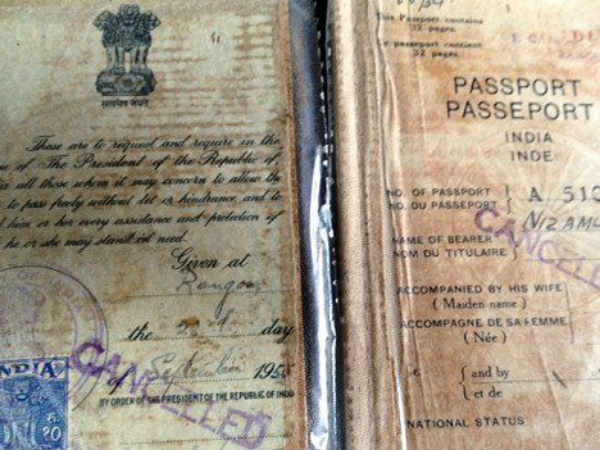 सत्यमेव जयते
These are to request and require in the
of The President of the Republic of
all those whom it may concern to allow the
to pass freely without let or hindrance, and to
him or her every assistance and protection of
he or she may stand in need.
Given at
Rangoon
the 23rd day
of September 195
BY ORDER OF THE PRESIDENT OF THE REPUBLIC OF INDIA
CANCELLED
INDIA
This Passport contains
32 pages.
passeport contient
32 pages.
PASSPORT
PASSEPORT
INDIA
INDE
NO. OF PASSPORT
NO. DU PASSEPORT
A 510
CANCELLED
NAME OF BEARER
NOM DU TITULAIRE
NIZAMU
ACCOMPANIED BY HIS WIFE
(Maiden name)
ACCOMPAGNE DE SA FEMME
(Née)
and by
et de
NATIONAL STATUS